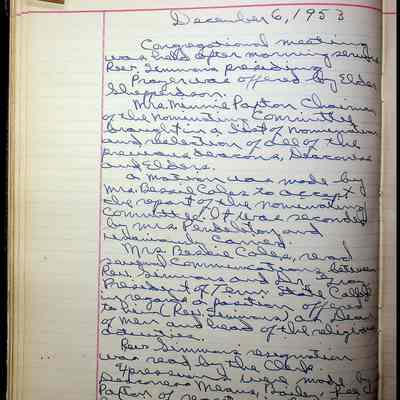 December 6, 1953
Congregational meeting
was held after morning service
Rev. Simmons presiding.
Prayer was offered by Elder
Shepperdson.
Mrs. Minnie Paxton Chairman
of the Nominating Committee
brought in a list of nomination
and selection of all of the
previous deacons, Deaconess
and Elders.
A motion was made by
Mrs. Bessie Coles to accept
the report of the nominating
Committee. It was seconded
by Mrs. Pendleton and
unanimously Carried.
Mrs. Bessie Coles, read
several Communications between
Rev. Simmons and Dr. Gray
President of Tenn. State College
in regards a position offered
to him (Rev. Simmons) as Dean
of men and head of the religious
activities.
Rev. Simmons resignation
was read by the Clerk.
Expressions were made by
Deacons Means, Bailey,
Paxton of regret